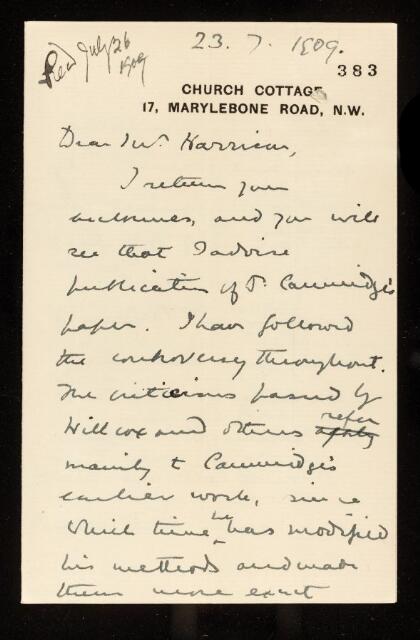 Recd July 26
1909
23. 7. 1909.
383
CHURCH COTTAGE
17, MARYLEBONE ROAD, N.W.
Dear Mr. Harrison,
I return your
enclosures, and you will
see that I advise
publication of Dr. Cammidge's
paper. I have followed
the controversy throughout.
The criticisms passed by
Willcox and others apply refer
mainly to Cammidge's
earlier work, since
which time he has modified
his methods and made
them more exact